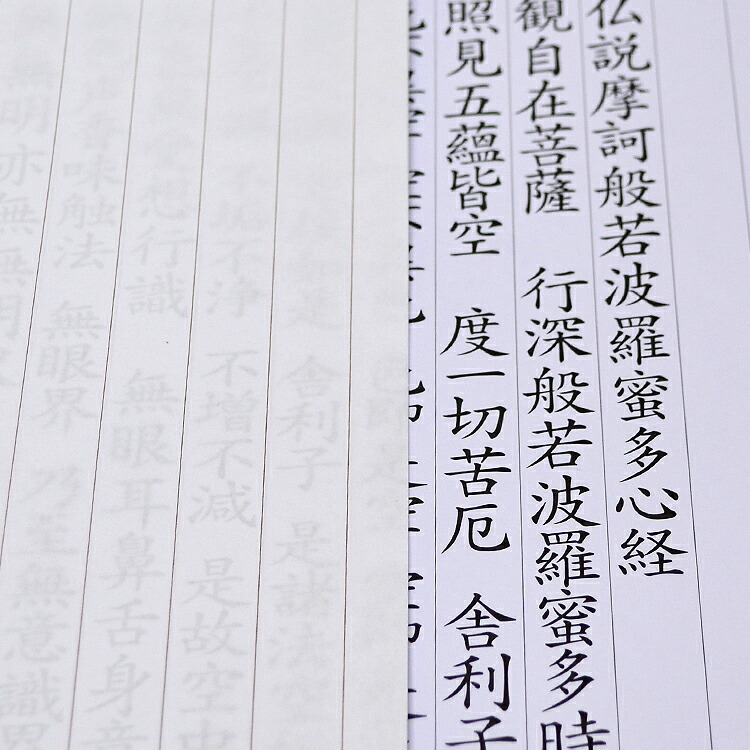 仏説摩訶般若波羅蜜多心経
観自在菩薩 行深般若波羅蜜多時
照見五蘊皆空 度一切苦厄 舎利子
即是空
如是 舎利子 是諸法空
不垢不浄 不増不減 是故空中
想行識 無眼耳鼻舌身意
声香味触法 無眼界 乃至無意識界
無明亦無無明尽